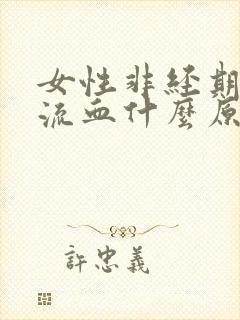 女性非经期
流血什麼原
許忠義